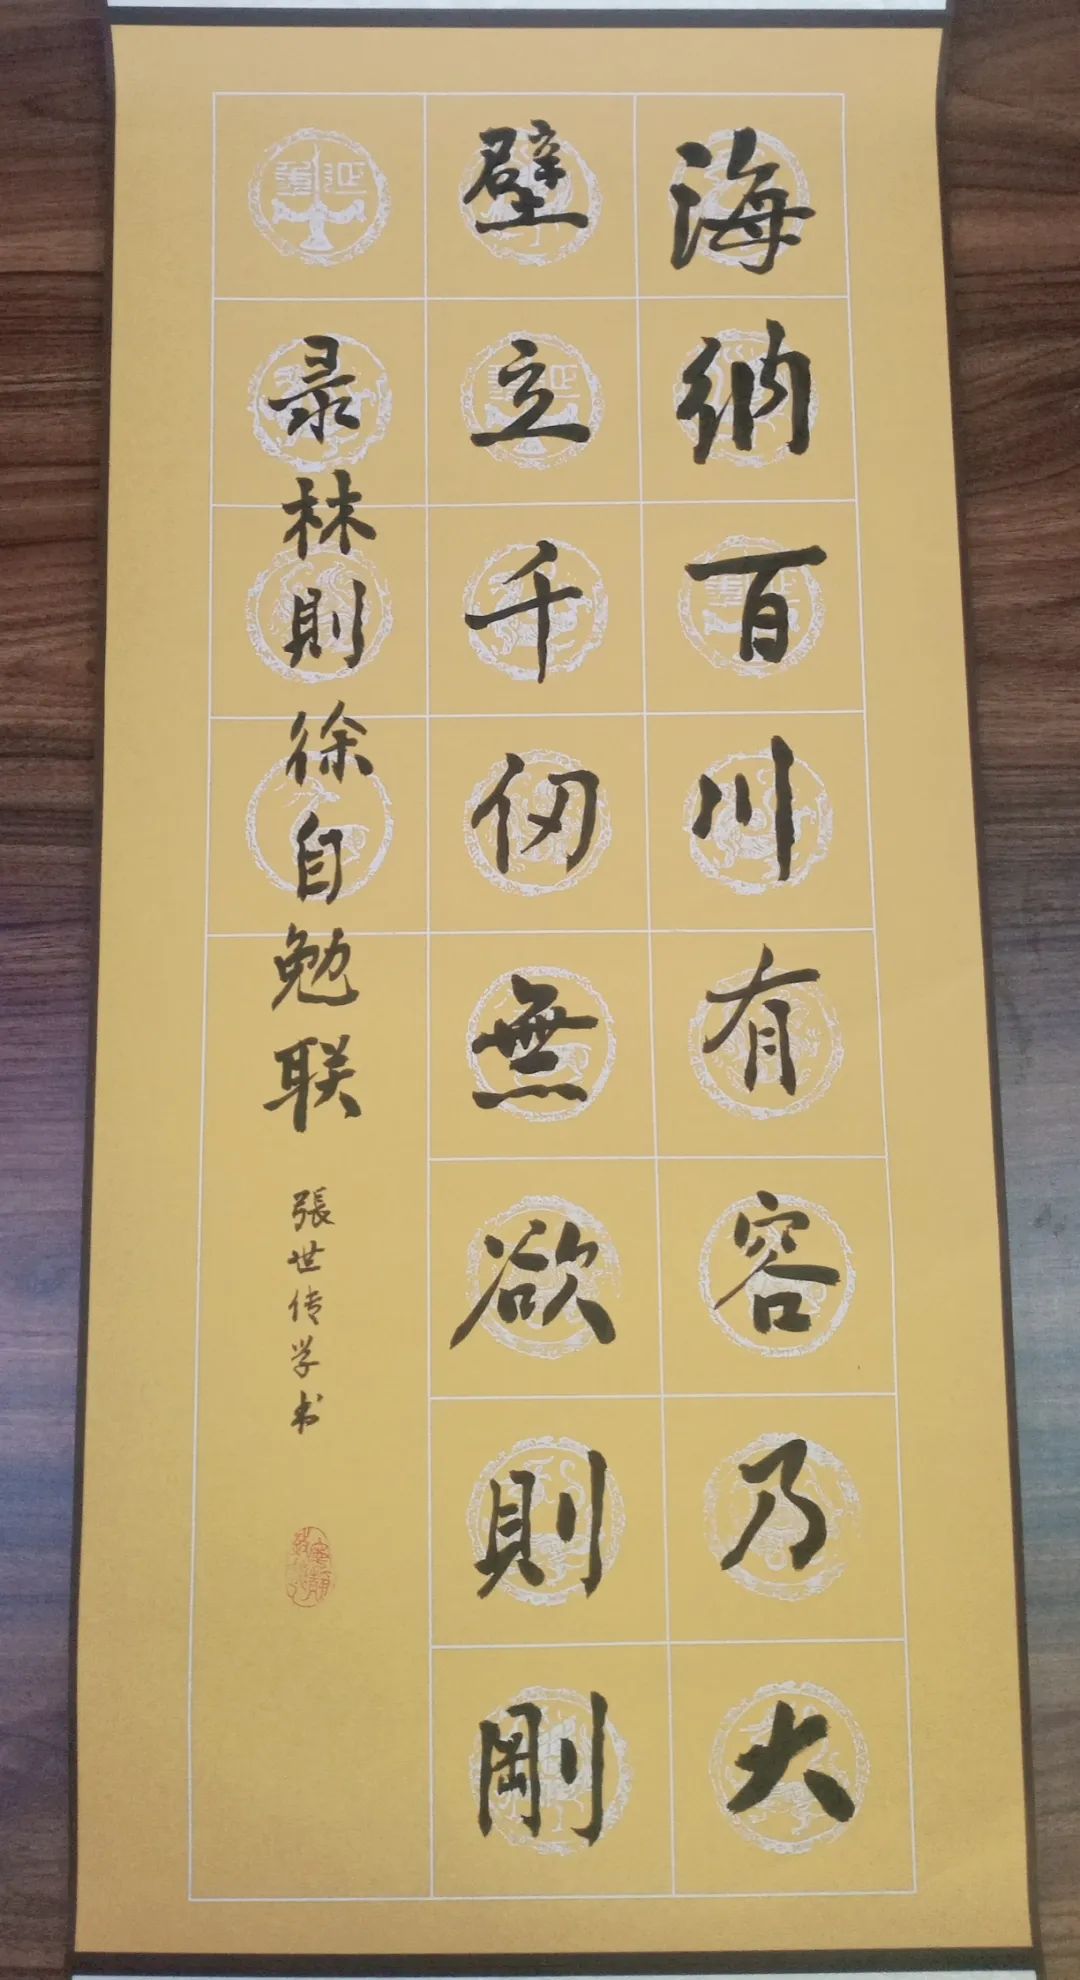 海納百川有容乃大
壁立千仞無欲則剛
录林則徐自勉联
張世传学书